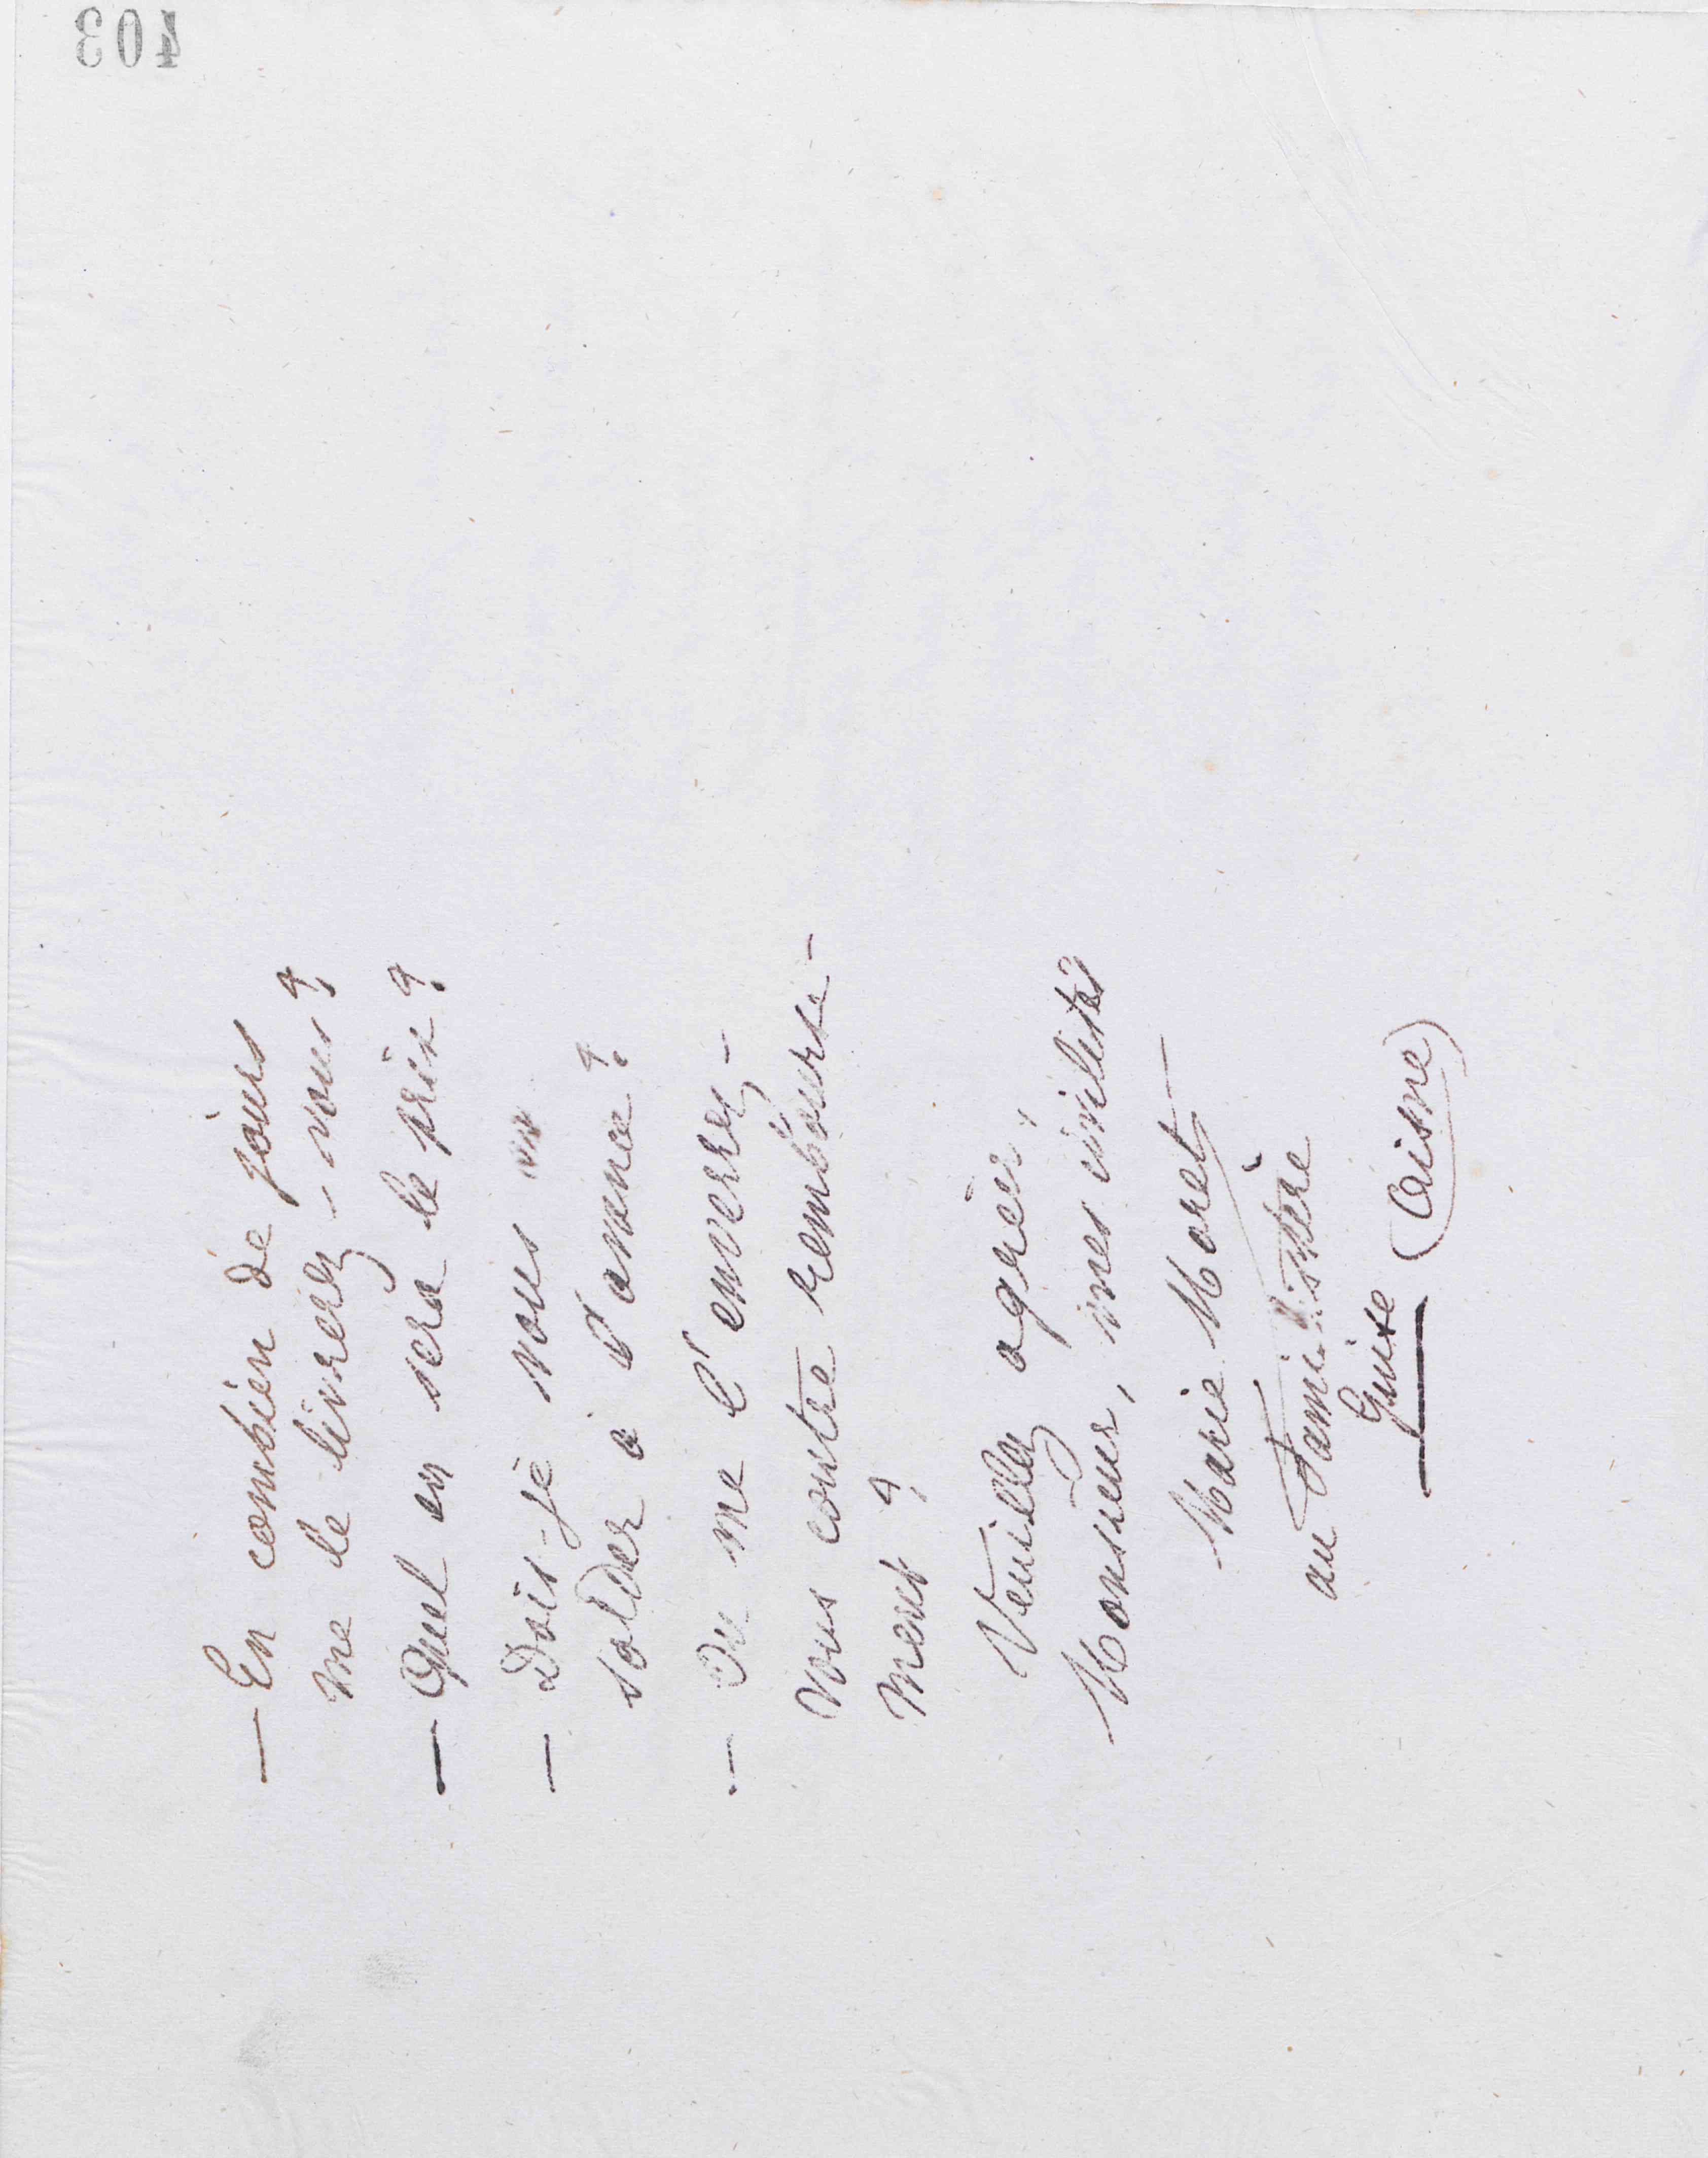 403
— En combien de jours
me le livrerez-vous ?
— Quel en sera le prix ?
— Dois-je vous en
solder à l'avance ?
— Ou me l'enverrez-
vous contre rembourse-
ment ?
Veuillez agréer,
Monsieur, mes civilités
Marie Moret
au Familistère
Guise (Aisne)